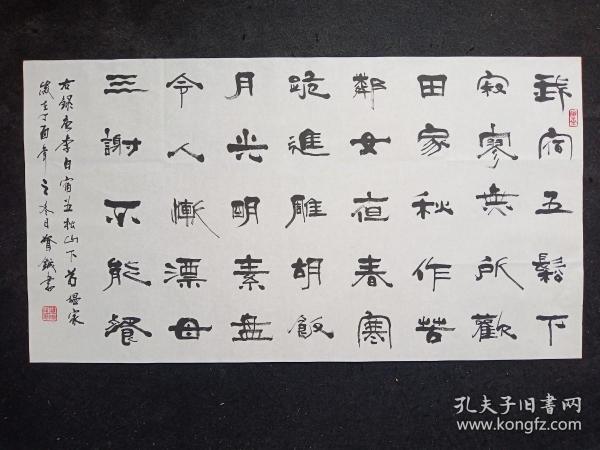 我宿五鬆下
寂寥無所歡
田家秋作苦
鄰女夜春寒
跪進雕胡飯
月光明素盤
令人慚漂母
三謝不能餐
右録唐李白宿五松山下荀媼家
歲在丁酉年之冬日書
孔夫子旧书网
www.kongfz.com